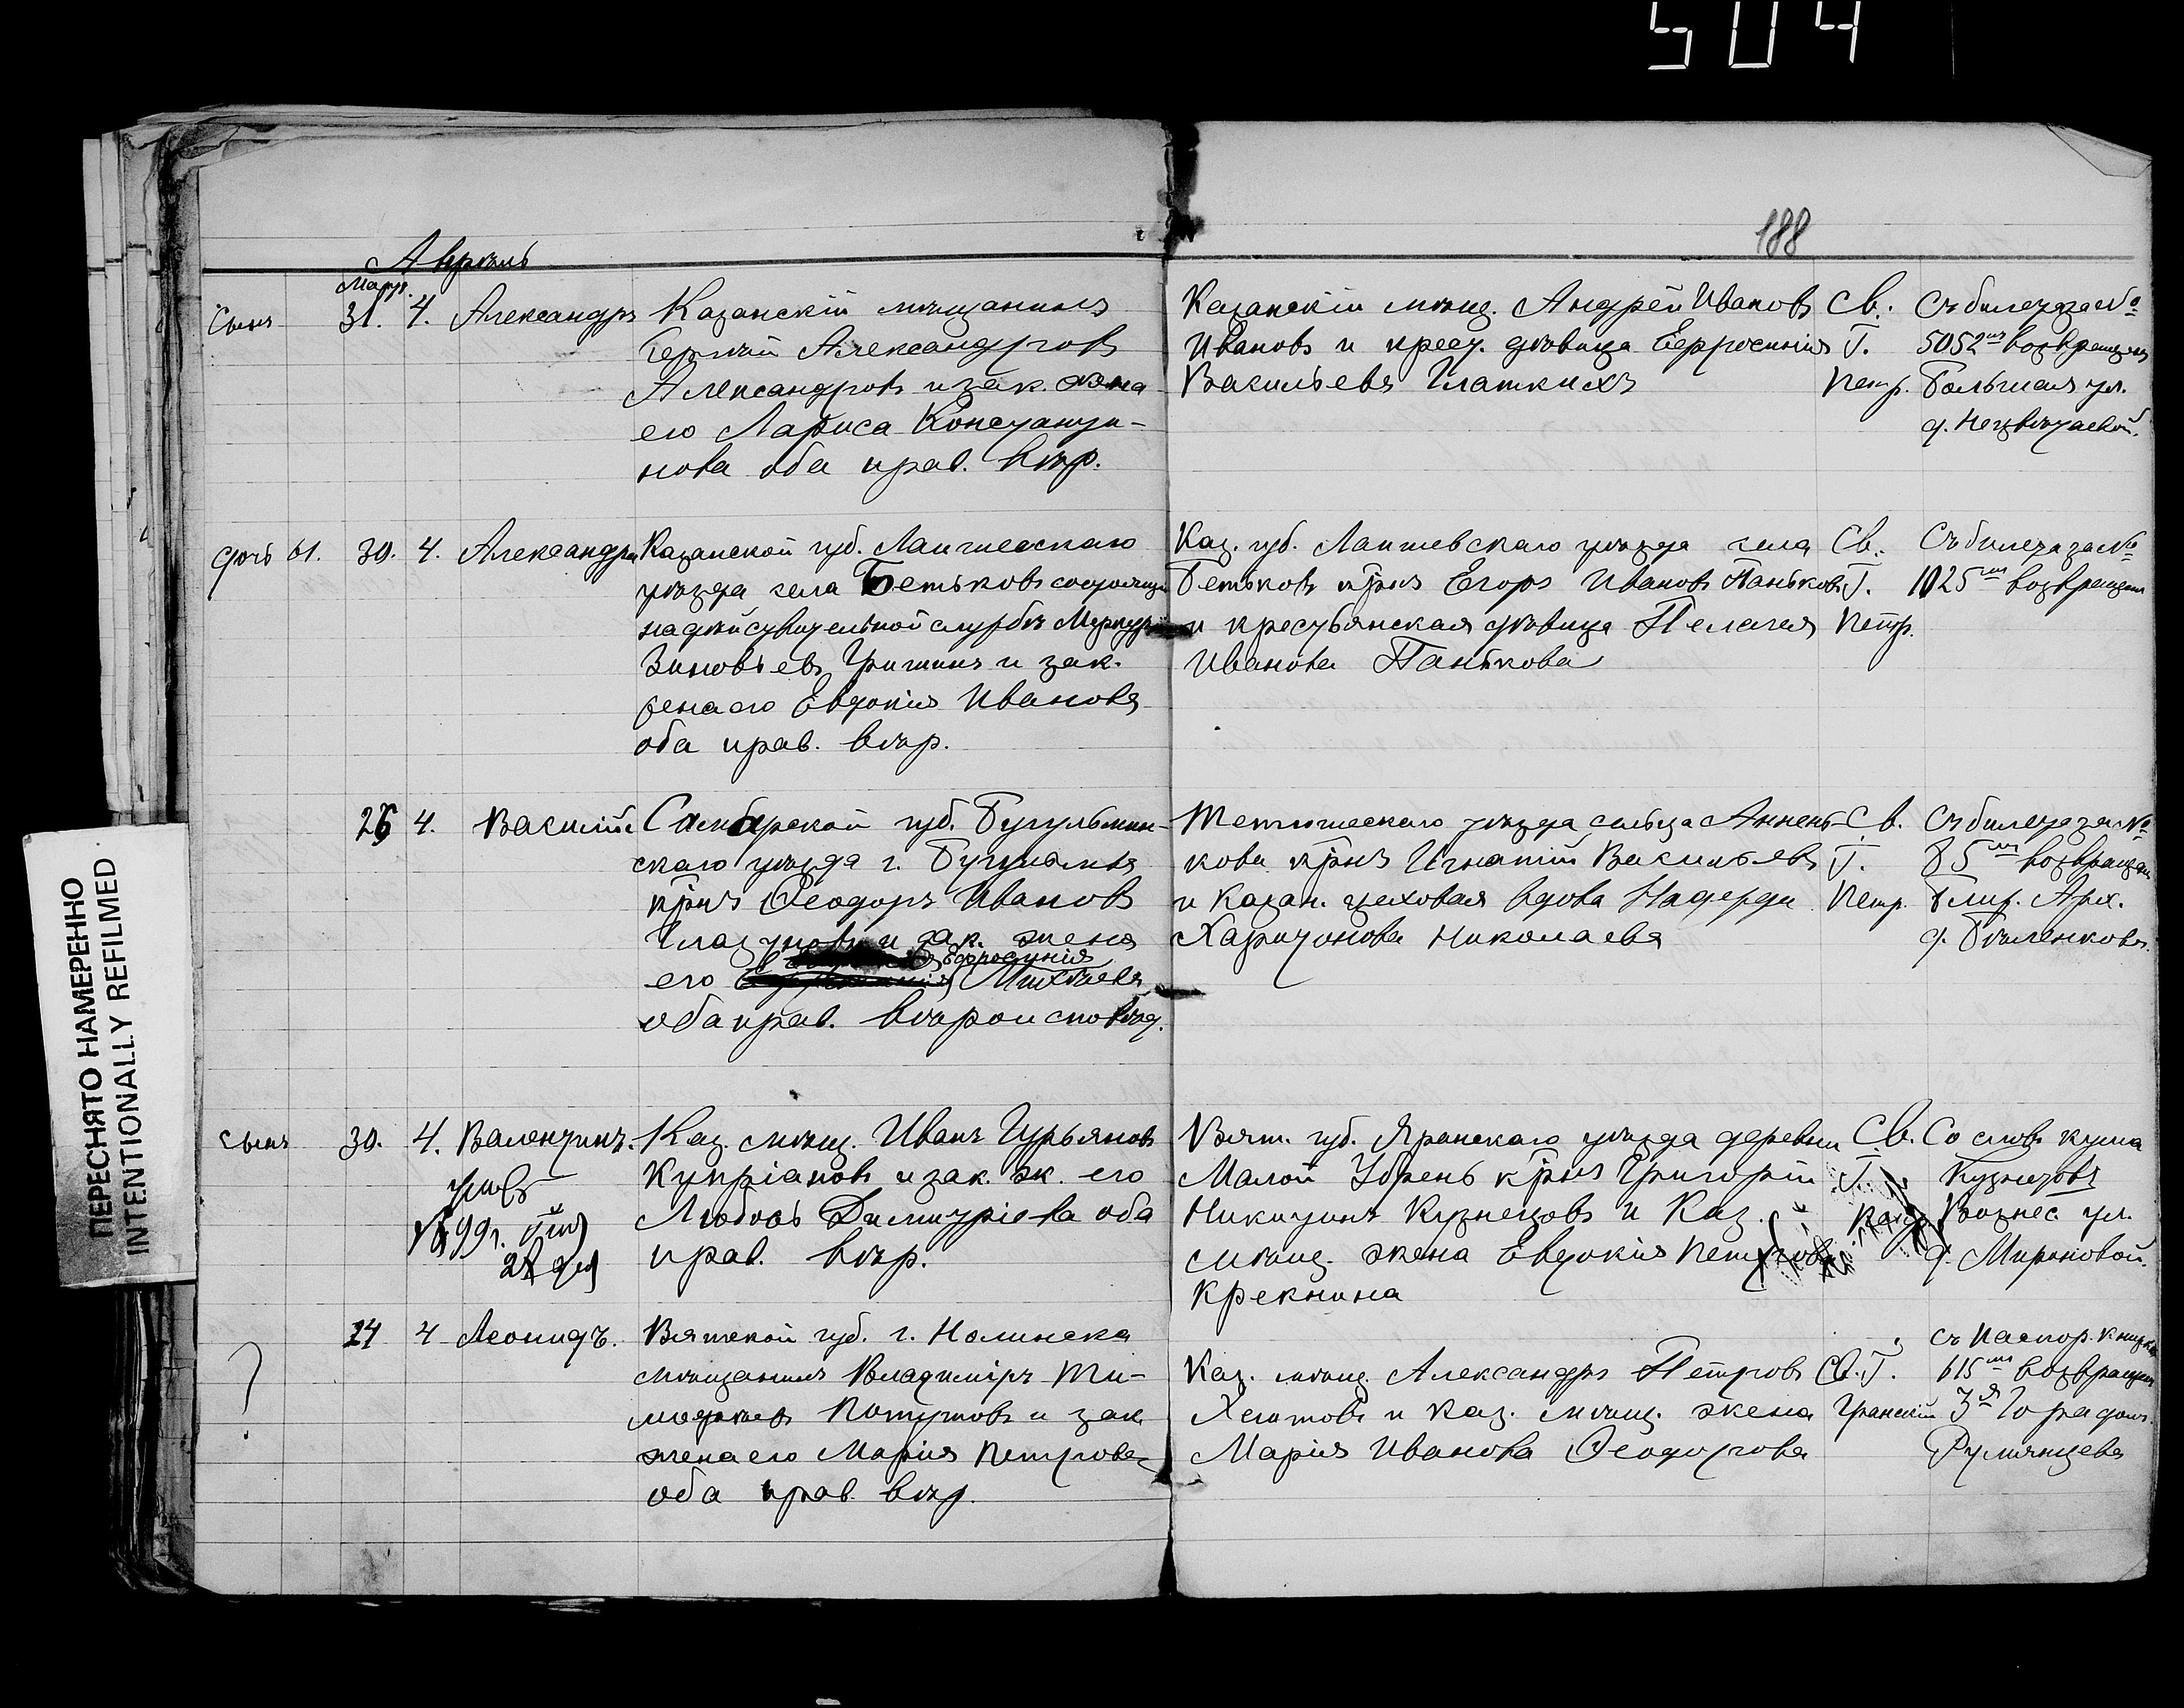 504
188
Апрѣль
Март.
Сынъ 31. 4. Александръ
Казанскій мѣщанинъ
Сергѣй Александровъ
Александровъ и зак. жена
его Лариса Константи-
нова оба прав. вѣр.
Казанскій мѣщ. Андрей Ивановъ
Ивановъ и крест. дѣвица Ефросинія
Васильева
Св.
Т.
Петр.
Съ билета за №
5052мъ возвращенъ
Большая ул.
д.
дочь 61. 30. 4. Александра
Казанской губ. Лаишевскаго
уѣзда села Бетьковъ состоящій
на дѣйствительной службѣ
Зиновьевъ Гришинъ и зак.
жена его Евдокія Иванова
оба прав. вѣр.
Каз. губ. Лаишевскаго уѣзда села
Бетьковъ крнъ Егоръ Ивановъ Паньковъ
и крестьянская дѣвица Пелагея
Иванова Панькова
Св.
Т.
Петр.
Съ билета за №
1025мъ возвращенъ
26 4. Василій
Самарской губ. Бугульмин-
скаго уѣзда г. Бугульмы
крнъ Ѳеодоръ Ивановъ
Глазуновъ и зак. жена
Ефросинія
его Михѣева
оба прав. вѣроисповѣд.
Тетюшскаго уѣзда сельца Аннень-
кова крнъ Игнатій Васильевъ
и Казан. цеховая вдова Надежда
Харитонова Николаева
Св.
Т.
Петр.
Съ билета за №
85мъ возвращенъ
Ближ. Арх.
д. Бѣленкова.
Сынъ 30. 4. Валентинъ.
умеръ
1899г.
Каз. мѣщ. Иванъ Гурьяновъ
Купріановъ и зак. ж. его
Любовь Димитріева оба
прав. вѣр.
Вят. губ. Яранскаго уѣзда деревни
Малой крнъ Григорій
Никитинъ Кузнецовъ и Каз.
мѣщ. жена Евдокія Петрова
Крекнина
Св.
Т.
Петр.
Со словъ кума
Кузнецова
Вознес. ул.
д. Мироновой.
? 24 4 Леонидъ.
Вятской губ. г. Нолинска
мѣщанинъ Владиміръ Ти-
моѳеевъ и зак
жена его Марія Петрова
оба прав. вѣр.
Каз. мѣщ. Александръ Петровъ
и Каз. мѣщ. жена
Марія Иванова Ѳеодорова
Св. Т.
Гранскій
съ паспор. книжки
615мъ возвращенъ
3я Гора дом.
Румянцева
ПЕРЕСНЯТО НАМЕРЕННО
INTENTIONALLY REFILMED